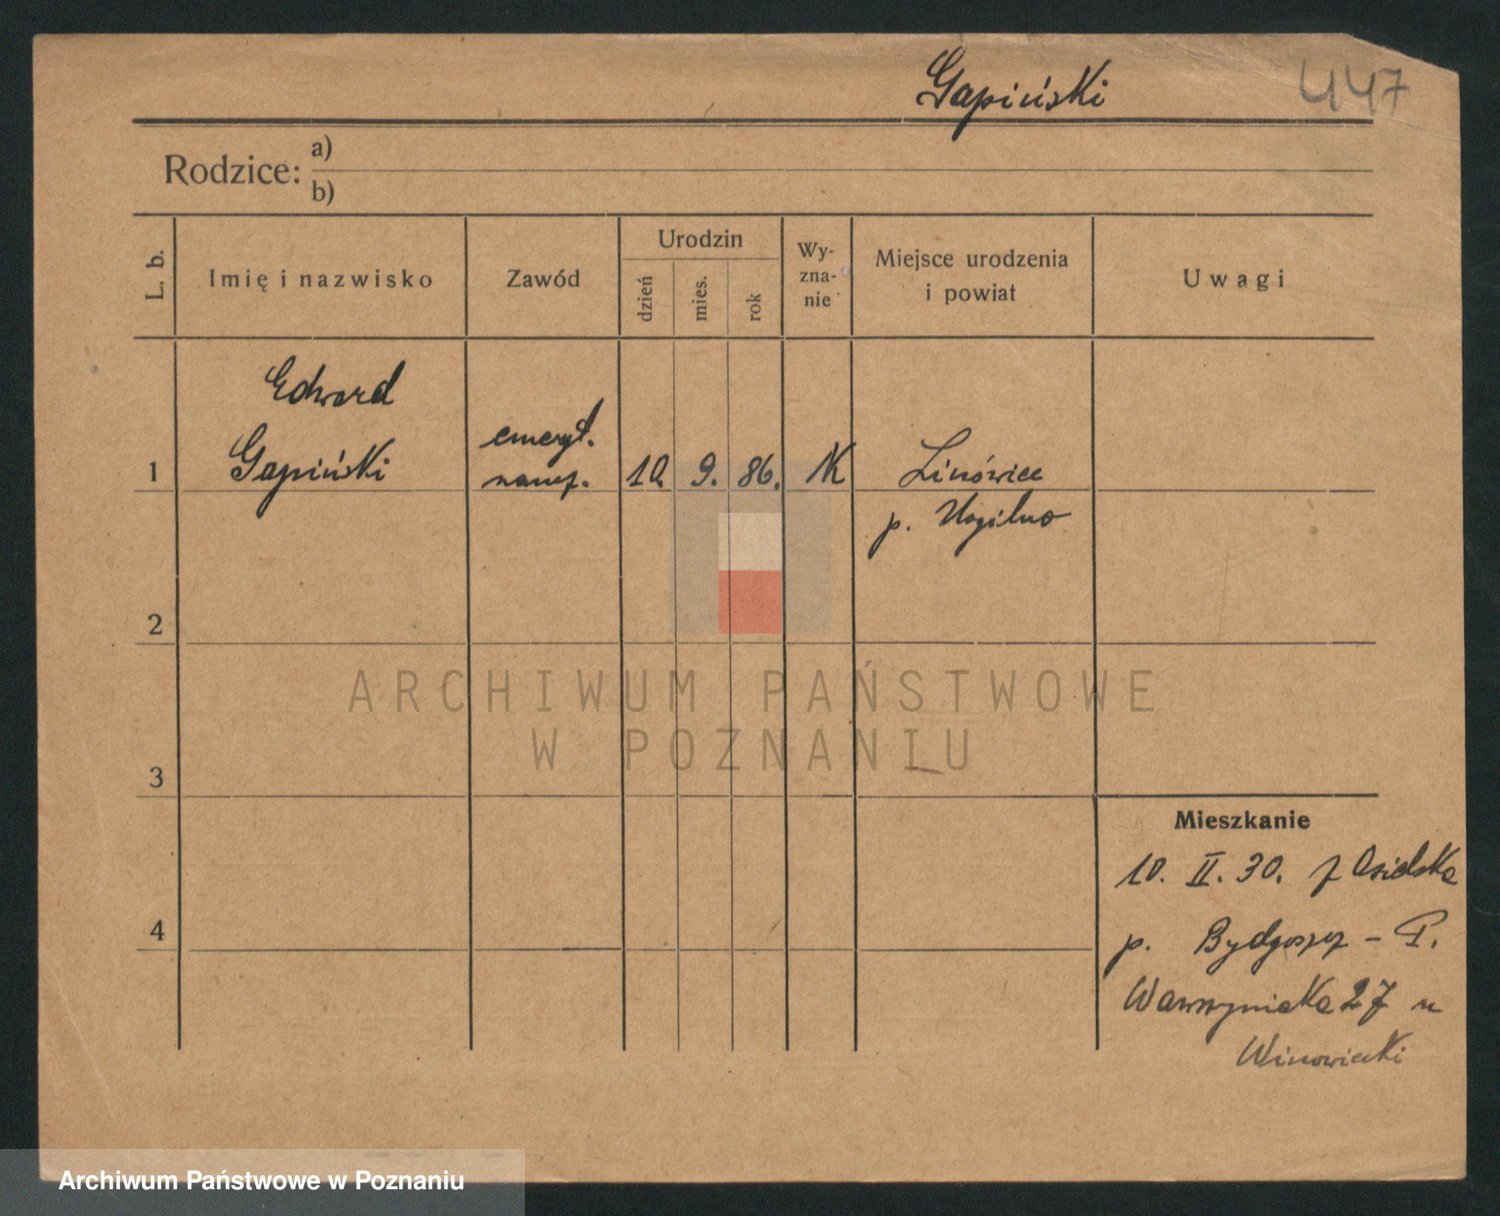 Gapiński 447
Rodzice: a)
b)
L. b.
Imię i nazwisko
Zawód
Urodzin
dzień
mies.
rok
Wy-
zna-
nie
Miejsce urodzenia
i powiat
Uwagi
Edward
1 Gapiński
emeryt.
naucz.
10. 9. 86.
Linówiec
p. Mogilno
2
3
4
ARCHIWUM PAŃSTWOWE
W POZNANIU
Mieszkanie
10. II. 30. z Osielska
p. Bydgoszcz -
27 u
Winowiecki
Archiwum Państwowe w Poznaniu